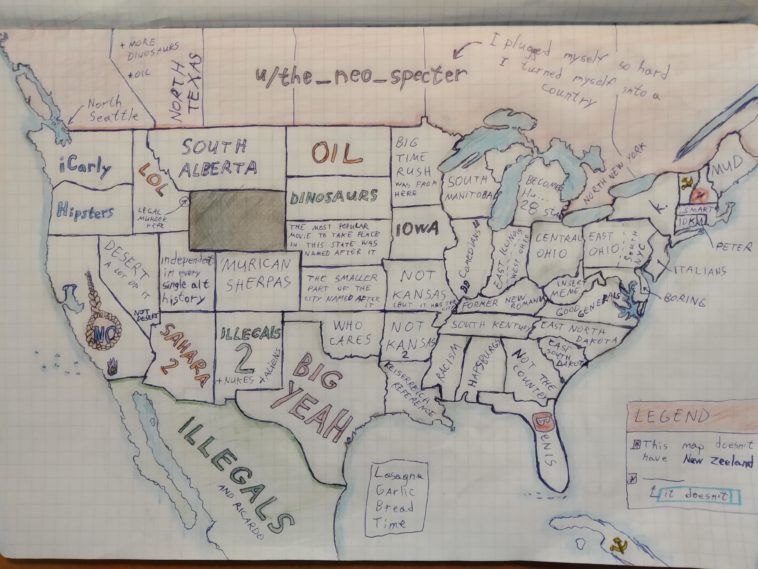 + MORE
DINOSAURS
+ OIL
NORTH
TEXAS
u/the_neo_specter
I plugged myself so hard
I turned myself into a
country
North
Seattle
iCarly
LOL
LEGAL
MURDER
HERE
SOUTH
ALBERTA
OIL
BIG
TIME
RUSH
WAS FROM
HERE
SOUTH
MANITOBA
BECOMES
NORTH NEW YORK
MUD
Hipsters
DINOSAURS
THE MOST POPULAR
MOVIE TO TAKE PLACE
IN THIS STATE WAS
NAMED AFTER IT
IOWA
K.
SMART
PETER
ITALIANS
BORING
DESERT
A LOT OF IT
NOT DESERT
independent
in every
single alt
history
MURICAN
SHERPAS
THE SMALLER
PART OF THE
CITY NAMED AFTER
IT
NOT
KANSAS
20 Comedians
EAST ILLINOIS
WEST OHIO
CENTRAL
OHIO
EAST
OHIO
SOUTH
NYC
INSERT
MEME
GOOD
GENERALS
FORMER NEW ROMANIA
MC
SAHARA
2
ILLEGALS
2
+ NUKES
WHO
CARES
NOT
KANSAS
2
SOUTH KENTUCKY
EAST NORTH
DAKOTA
EAST
SOUTH
DAKOTA
BIG
YEAH
REISERREICH
REFERENCE
RACISM
HAPSBURG
NOT THE
COUNTRY
BENIS
ILLEGALS
AND RICARDO
Lasagna
Garlic
Bread
Time
LEGEND
This map doesn't
have New Zeeland
it doesn't